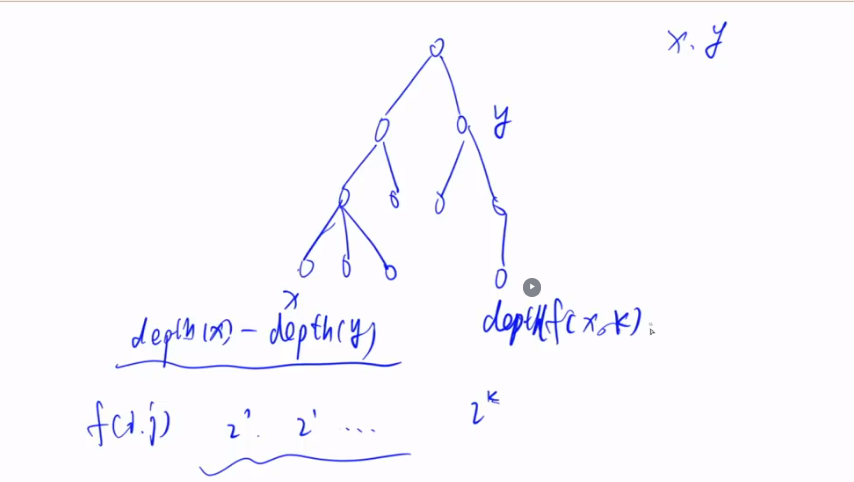 x. y
y
x
depth(x) - depth(y)
depth(f(x, k)
f(i.j) 2⁰. 2¹ ...
2ᵏ